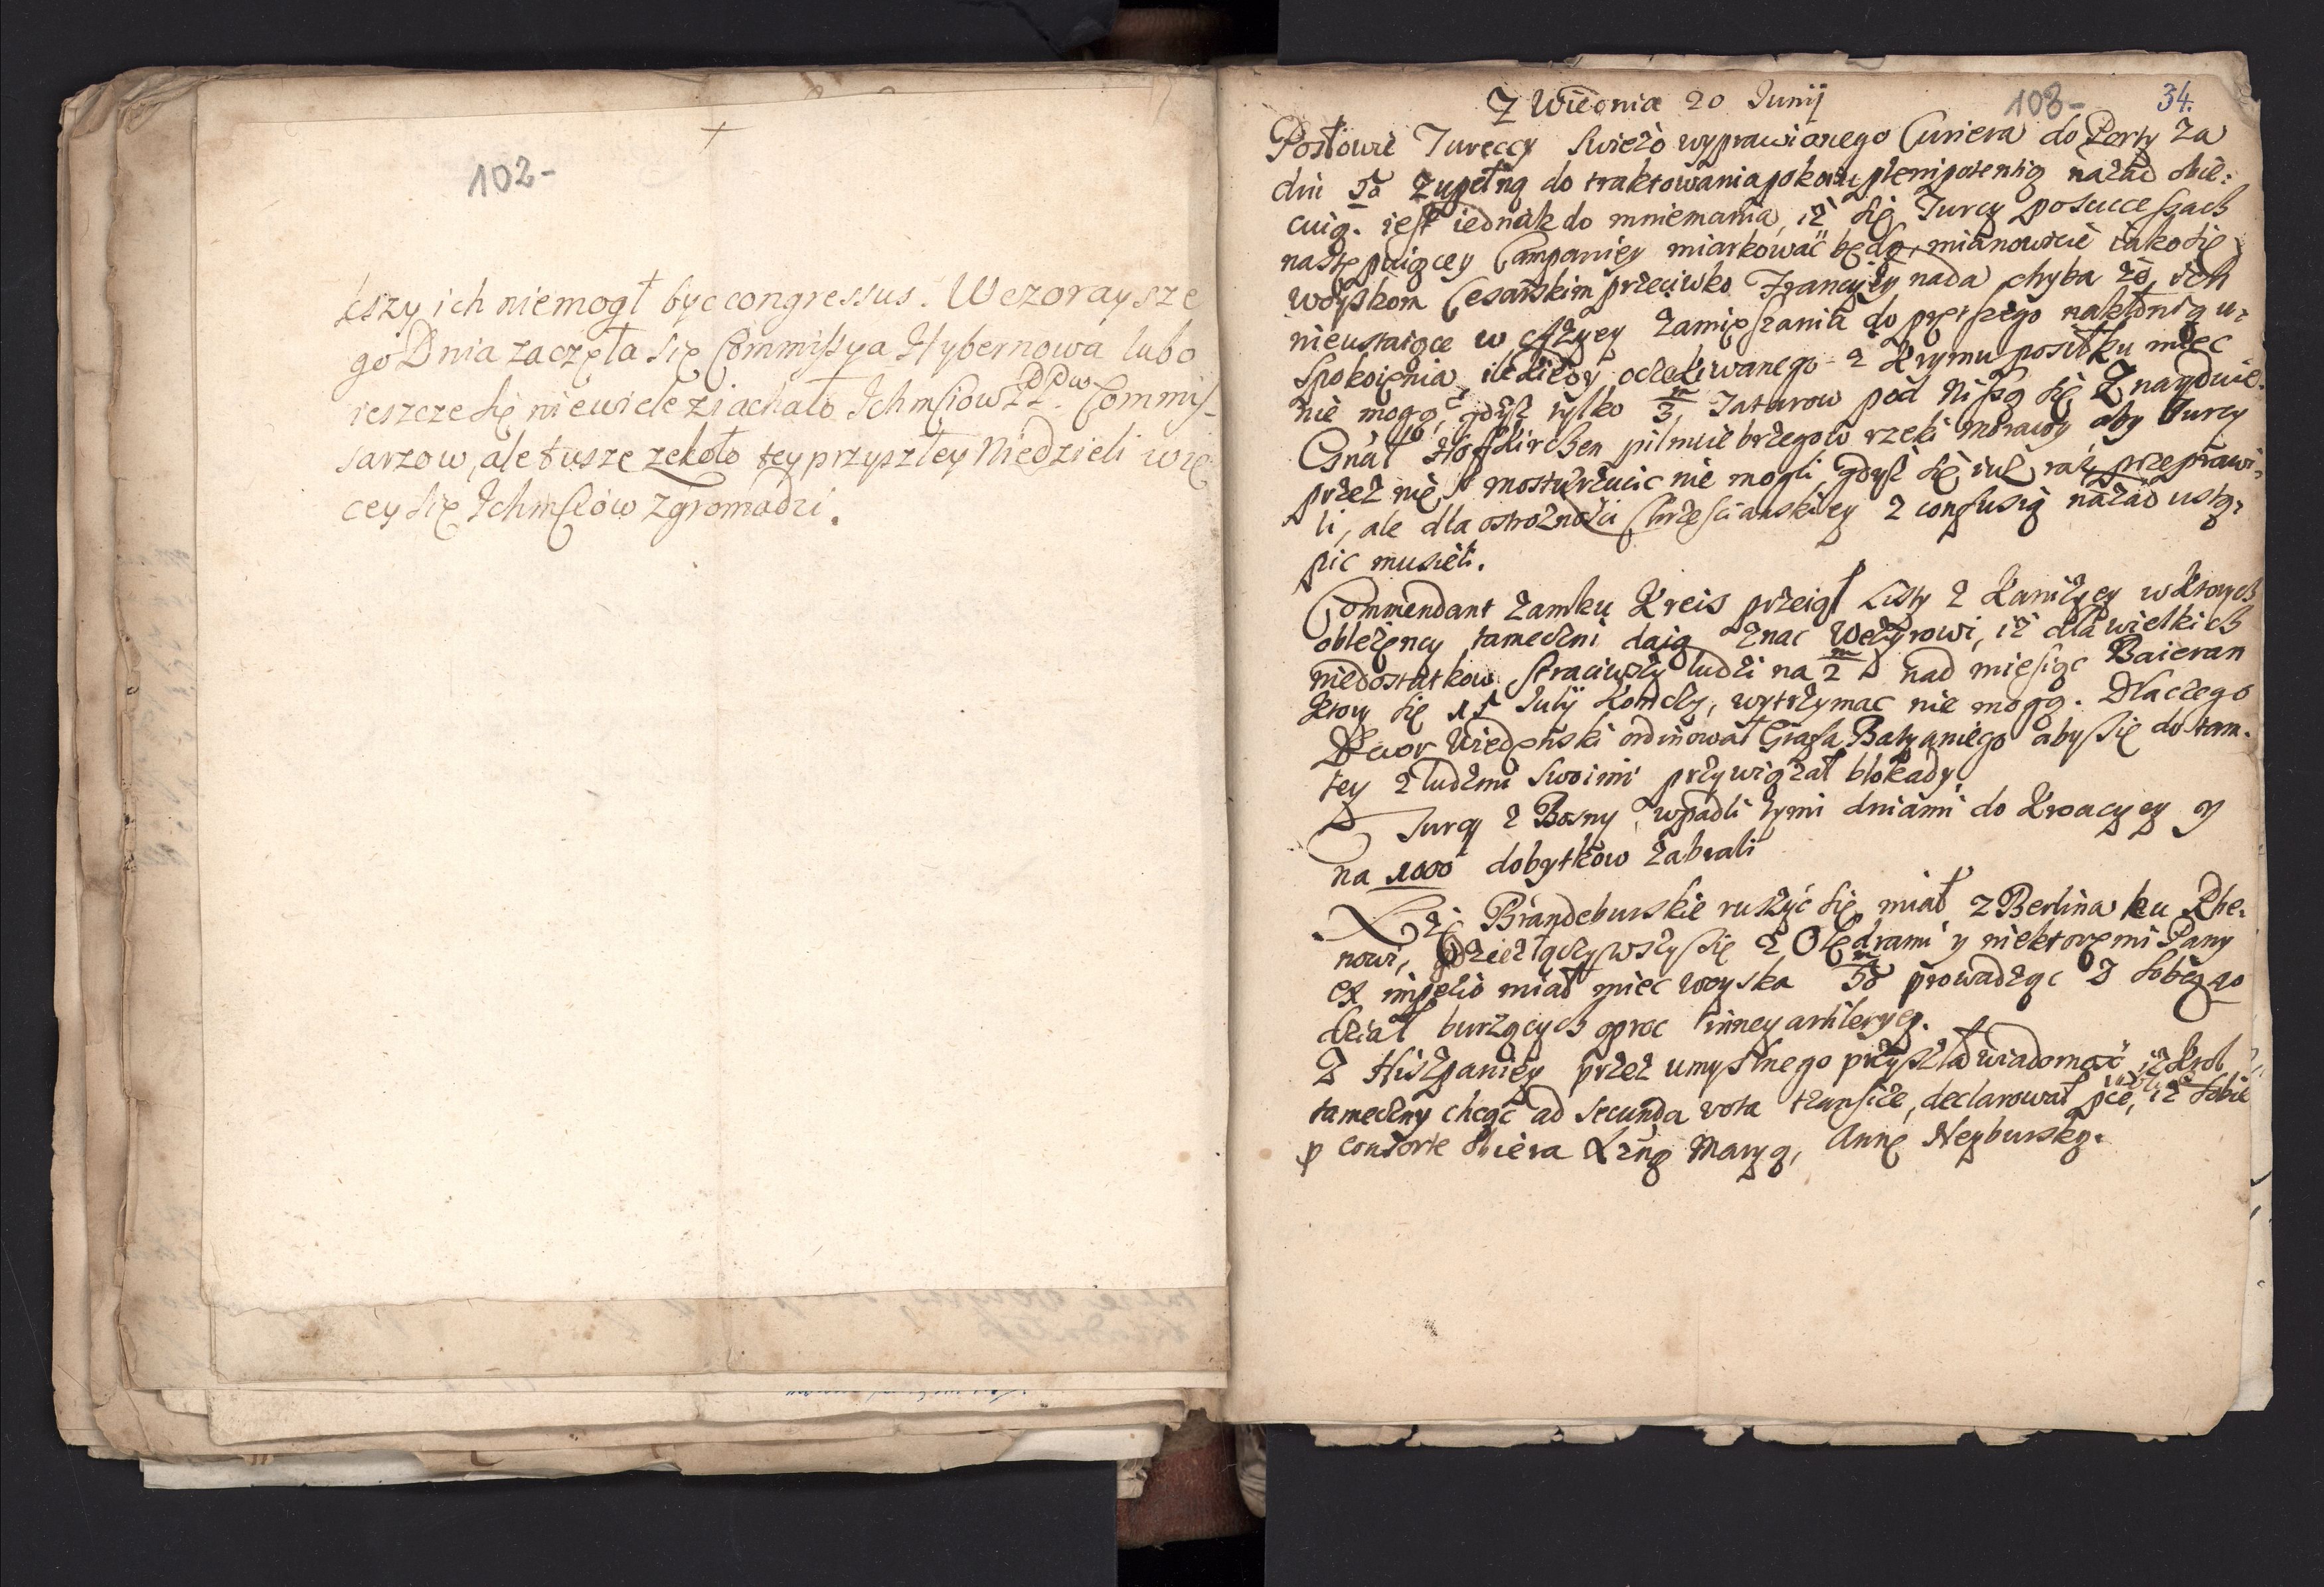 102-
szy ich niemogł byc congressus. Wczoraysze
go Dnia zaczęła się Commissya Hybernowa lubo
ieszcze się niewiele ziachało Ichmsciow PP. Commis-
sarzow, ale tusze zekoło tey przyszłey Niedzieli wię
cey się Ichmściow zgromadzi.
Z Wiednia 20 Junij
103-
34.
Posłowie Tureccy swiezo wyprawionego Curiera do Porty za
dni 50 zupełną do traktowania pokoiu plenipotentią nazad obie:
cuią. iest iednak do mniemania, iż się Turcy po successach
następuiącey Campaniey miarkować będą, mianowicie iako się
woyskom Cesarskim przeciwko Francyiey nada chyba że ich
nieustaiące w Azyey zamięszania do prętszego nakłonią u:
spokoienia, ile kiedy oczekiwanego z Krymu posiłku miec
nie mogą, gdyż tylko 3/m Tatarow pod Nissą się znayduie.
Gnał Hoffkirchen pilnuie brzegow rzeki Morawy aby Turcy
przez nię mostu rzucic nie mogli, gdyż się iuż raz przeprawi:
li, ale dla ostrożności Chrzescianskiey z confusią nazad ustą:
pic musieli.
Commendant Zamku Kreis przeiął Listy z Kaniżyey w ktorych
oblezency tameczni daią znac Wezyrowi, iż dla wielkich
niedostatkow straciwszy ludzi na 2/m nad miesiąc Baieran
ktory się 15 Julij konczy, wytrzymac nie mogą. Dlaczego
Dwor Wiedenski ordinował Grafa Batyaniego aby się do tam:
tey z ludzmi swoimi przywiązał blokady
Turcy z Bosny wpadli tymi dniami do Kroacyey y
na 1000 dobytkow zabrali
Xże Brandeburskie ruszyć się miał z Berlina ku Rhe:
nowi, gdzie złączywszy się z Olędrami y niektoremi Pany
ex imperio miał miec woyska 50/m prowadząc z sobą 40
dział burzących oproc inney artileryey.
Z Hiszpaniey przez umyslnego przyszła wiadomość iż Krol
tameczny chcąc ad secunda vota transire, declarował iż sobie
p consorte obiera Xżnę Maryą, Annę Neyburską.